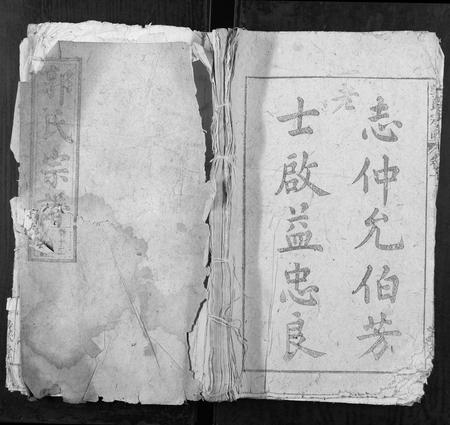 志仲允伯芳
士啟益忠良
老
郭氏宗譜